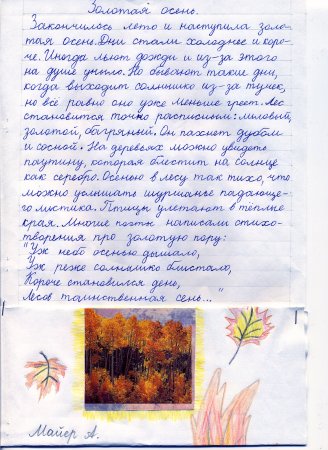 Золотая осень.
Закончилось лето и наступила золо-
тая осень. Дни стали холоднее и коро-
че. Иногда льют дожди и из-за этого
на душе уныло. Но бывают такие дни,
когда выходит солнышко из-за тучек,
но всё равно оно уже меньше греет. Лес
становится точно расписным: лиловый,
золотой, багряный. Он пахнет дубом
и сосной. На деревьях можно увидеть
паутину, которая блистит на солнце
как серебро. Осенью в лесу так тихо, что
можно услышать шуршанье падающе-
го листика. Птицы улетают в теплые
края. Многие поэты написали стихо-
творения про золотую пору:
"Уж небо осенью дышало,
Уж реже солнышко блистало,
Короче становился день,
Лесов таинственная сень..."
Майер А.